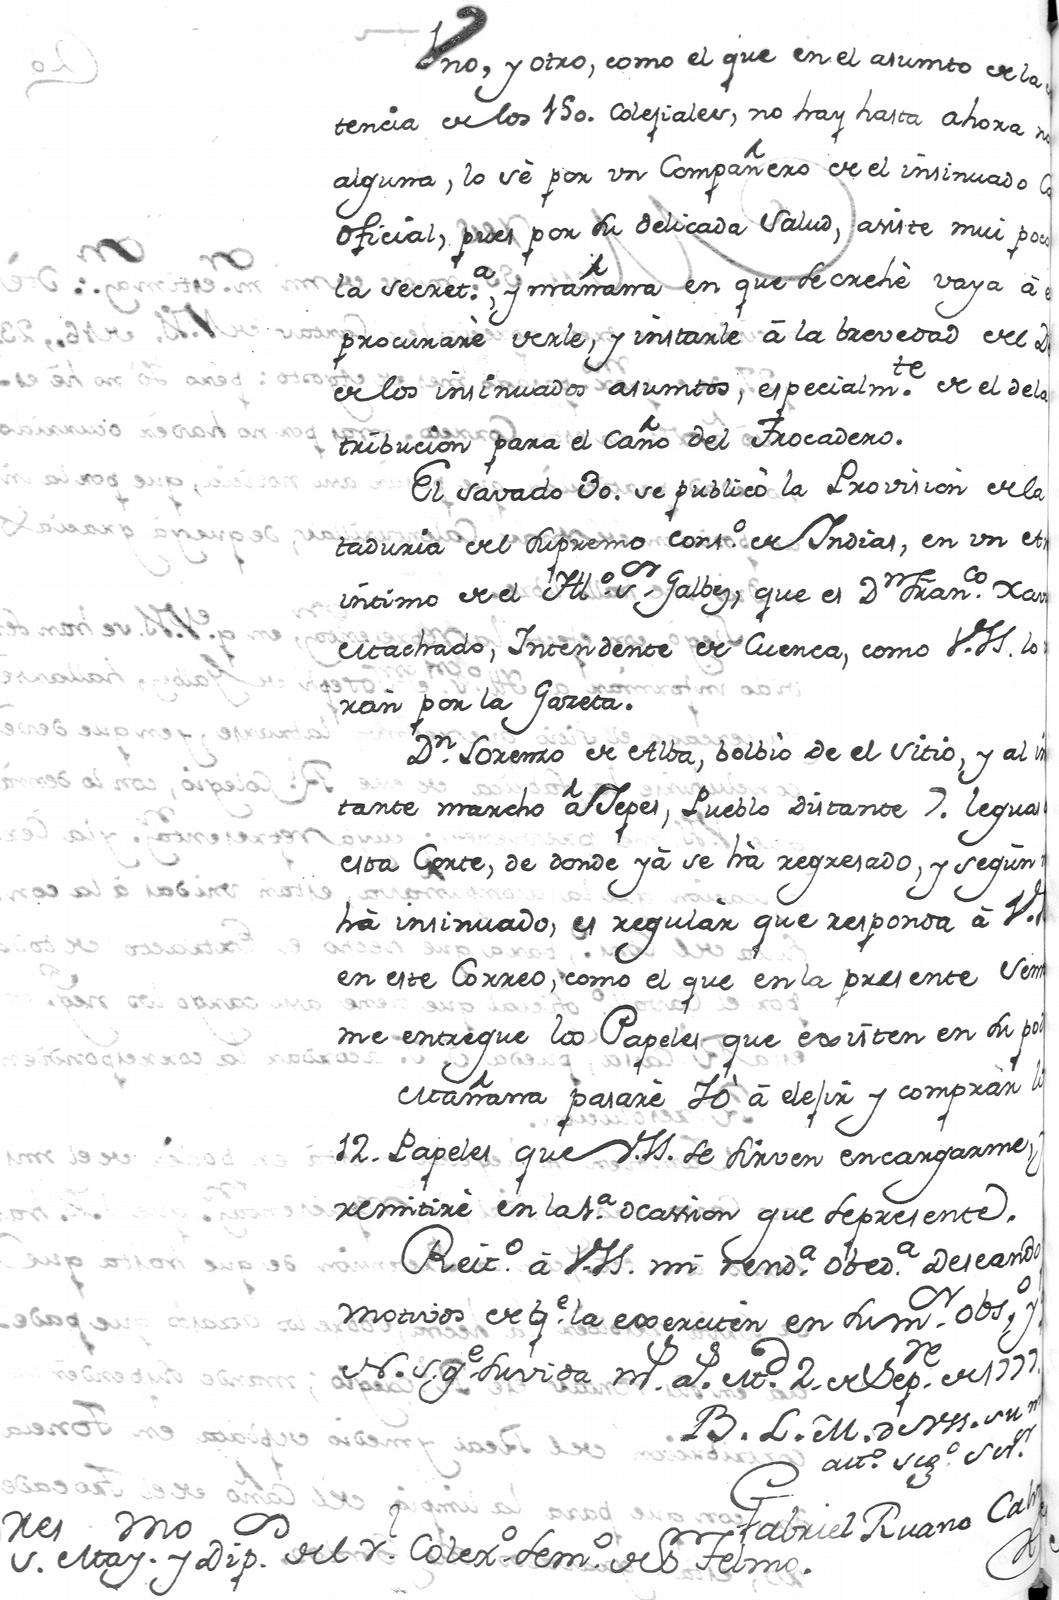 Vno, y otro, como el que en el asumto de la
tencia de los 150. Colejiales, no hay hasta ahora
alguna, lo sè por vn Compañero de el insinuado
Oficial, pues por su delicada Salud, asiste mui poco
la secret.ª, y mañana en que se crehè vaya à
procurarè verle, y instarle à la brevedad del
de los insinuados asumtos, especialm.te de el dela
tribucion para el Caño del Trocadero.
El Savado 30. se publicò la Provision de la
taduria del Supremo Cons.o de Indias, en vn
intimo de el Ill.o S.or Galbez, que es D.n Fran.co Xav
Machado, Intendente de Cuenca, como V.SS. lo
ràn por la Gazeta.
D.n Lorenzo de Alba, bolbiò de el Sitio, y al
tante marcho à Yepes, Pueblo distante 7. leguas
esta Corte, de donde yà se hà regresado, y según
hà insinuado, es regulàr que responda à
en este Correo, como el que en la presente
me entregue los Papeles que existen en su
Mañana pasarè Yò à elejir y compràr
12. Papeles que V.SS. se sirven encargarme, y
remitirè en la 1.ª ocassion que se presente.
Reit.o à V.SS. mi rend.ª obed.ª deseando
motivos de q.e la exerciten en su m.or obs.o, y
N. S. g.e su vida m.s a.s M.d 2. de Sep.re de 1777.
B. L. M. de VSS. su m
att.o seg.o ser.or
Gabriel Ruano
res Mo
S. May. y Dip. del R. Colex.o Sem.o de S.n Telmo.